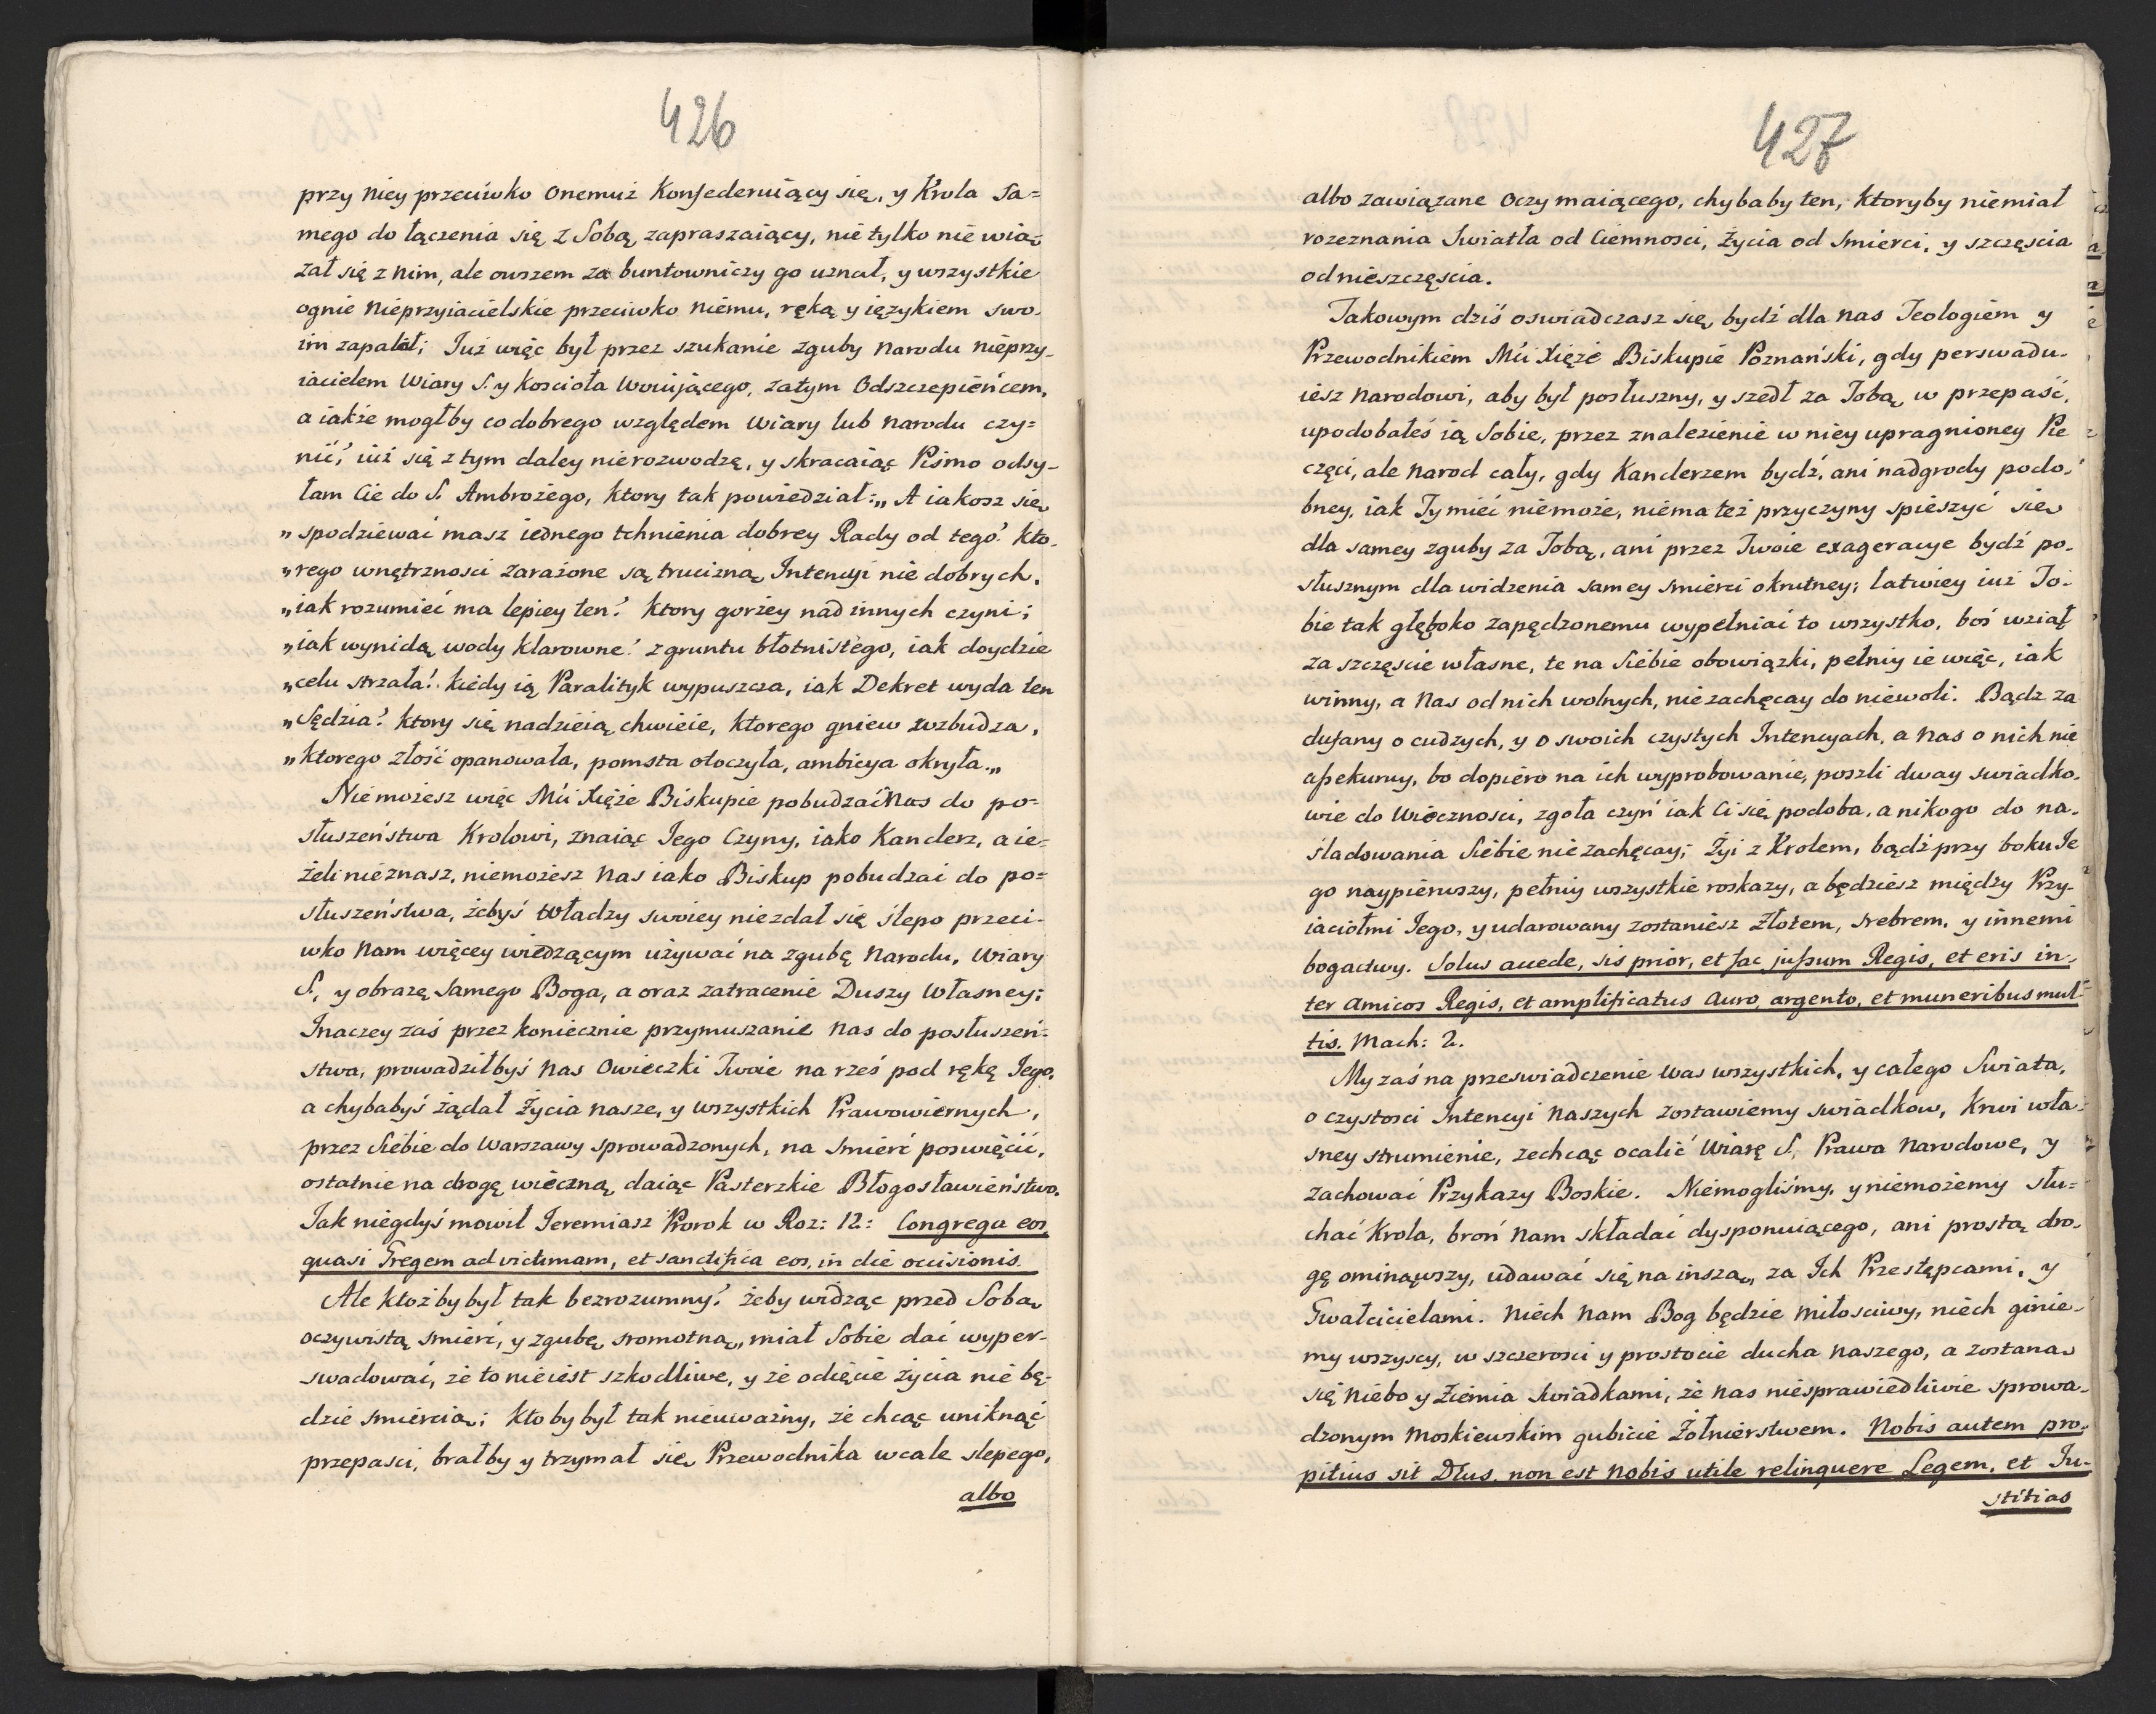 426
przy niey przeciwko onemuż Konfederuiący się, y Krola Sa=
mego do łączenia się z Sobą zapraszaiący, nie tylko nie wią=
zał się z nim, ale owszem za buntowniczy go uznał, y wszystkie
ognie nieprzyiacielskie przeciwko niemu, ręką y ięzykiem swo-
im zapalał; Już więc był przez szukanie zguby Narodu nieprzy-
iacielem Wiary S. y Koscioła Woiującego, zatym Odszczepieńcem,
a iakże mogłby co dobrego względem Wiary lub Narodu czy=
nić? iuż się z tym daley nierozwodzę, y skracaiąc Pismo odsy-
łam Cie do S. Ambrożego, ktory tak powiedział: „A iakosz się
„spodziewać masz iednego tchnienia dobrey Rady od tego? kto-
„rego wnętrznosci zarażone są trucizną Intencyi nie dobrych,
„iak rozumieć ma lepiey ten? ktory gorzey nad innych czyni;
„iak wynidą wody klarowne? z gruntu błotnistego, iak doydzie
„celu strzała? kiedy ią Paralityk wypuszcza, iak Dekret wyda ten
„Sędzia? ktory się nadzieią chwieie, ktorego gniew wzbudza,
„ktorego złość opanowała, pomsta otoczyła, ambicya okryła.„
Nie możesz więc Mći Xięże Biskupie pobudzać Nas do po=
słuszeństwa Krolowi, znaiąc Jego Czyny, iako Kanclerz, a ie=
żeli nieznasz, niemożesz Nas iako Biskup pobudzać do po=
słuszeństwa, żebyś Władzy swoiey niezdał się ślepo przeci-
wko Nam więcey wiedzącym używać na zgubę Narodu, Wiary
S., y obrazę Samego Boga, a oraz zatracenie Duszy Własney;
Inaczey zaś przez koniecznie przymuszanie Nas do posłuszeń-
stwa, prowadziłbyś Nas Owieczki Twoie na rześ pod rękę Jego,
a chybabyś żądał życia nasze, y wszystkich Prawowiernych,
przez Siebie do Warszawy sprowadzonych, na Smierć poswięcić,
ostatnie na drogę wieczną daiąc Pasterzkie Błogosławieństwo.
Jak niegdyś mowił Jeremiasz Prorok w Roz: 12: Congrega eos,
quasi Gregem ad victimam, et sanctifica eos, in die occisionis.
Ale ktoż by był tak bezrozumny? żeby widząc przed Sobą
oczywistą smierć, y zgubę sromotną, miał Sobie dać wyper-
swadować, że to nieiest szkodliwe, y że odięcie życia nie bę-
dzie smiercią; kto by był tak nieuważny, że chcąc uniknąć
przepasci, brałby y trzymał się Przewodnika wcale slepego,
albo
427
albo zawiązane Oczy maiącego, chybaby ten, ktoryby niemiał
rozeznania Swiatła od Ciemnosci, życia od Smierci, y szczęscia
od nieszczęscia.
Takowym dziś oswiadczasz się bydź dla Nas Teologiem y
Przewodnikiem Mći Xięże Biskupie Poznański, gdy perswadu-
iesz Narodowi, aby był posłuszny, y szedł za Tobą w przepaść,
upodobałeś ią Sobie, przez znalezienie w niey upragnioney Pie
częci, ale Narod cały, gdy Kanclerzem bydź, ani nadgrody podo-
bney, iak Ty mieć niemoże, niema też przyczyny spieszyć się
dla samey zguby za Tobą, ani przez Twoie exageracye bydź po-
słusznym dla widzenia samey smierci okrutney; łatwiey iuż To-
bie tak głęboko zapędzonemu wypełniać to wszystko, boś wziął
za szczęscie własne, te na Siebie obowiązki, pełniy ie więc, iak
winny, a Nas od nich wolnych, niezachęcay do niewoli. Bądz za
dufany o cudzych, y o swoich czystych Intencyach, a Nas o nich nie
assekuruy, bo dopiero na ich wyprobowanie, poszli dway swiadko-
wie do Wiecznosci, zgoła czyń iak Ci się podoba, a nikogo do na-
śladowania Siebie niezachęcay; Żyi z Krolem, bądź przy boku Je
go naypierwszy, pełniy wszystkie roskazy, a będziesz między Przy-
iaciołmi Jego, y udarowany zostaniesz Złotem, srebrem, y innemi
bogactwy. Solus accede, sis prior, et fac jussum Regis, et eris in-
ter Amicos Regis, et amplificatus Auro, argento, et muneribus mul=
tis. Mach: 2.
My zaś na przeswiadczenie Was wszystkich, y całego Swiata,
o czystosci Intencyi Naszych zostawiemy swiadkow, Krwi wła-
sney strumienie, zechcąc ocalić Wiarę S., Prawa Narodowe, y
zachować Przykazy Boskie. Niemogliśmy, y niemożemy słu=
chać Krola, broń Nam składać dysponuiącego, ani prostą dro-
gę ominąwszy, udawać się na inszą, za Ich Przestępcami, y
Gwałcicielami. Niech Nam Bog będzie miłosciwy, niech ginie-
my wszyscy, w szczerosci y prostocie ducha naszego, a zostaną
się Niebo y Ziemia Swiadkami, że Nas niesprawiedliwie sprowa-
dzonym Moskiewskim gubicie Żołnierstwem. Nobis autem pro-
pitius sit Dēus, non est Nobis utile relinquere Legem, et Ju-
stitias